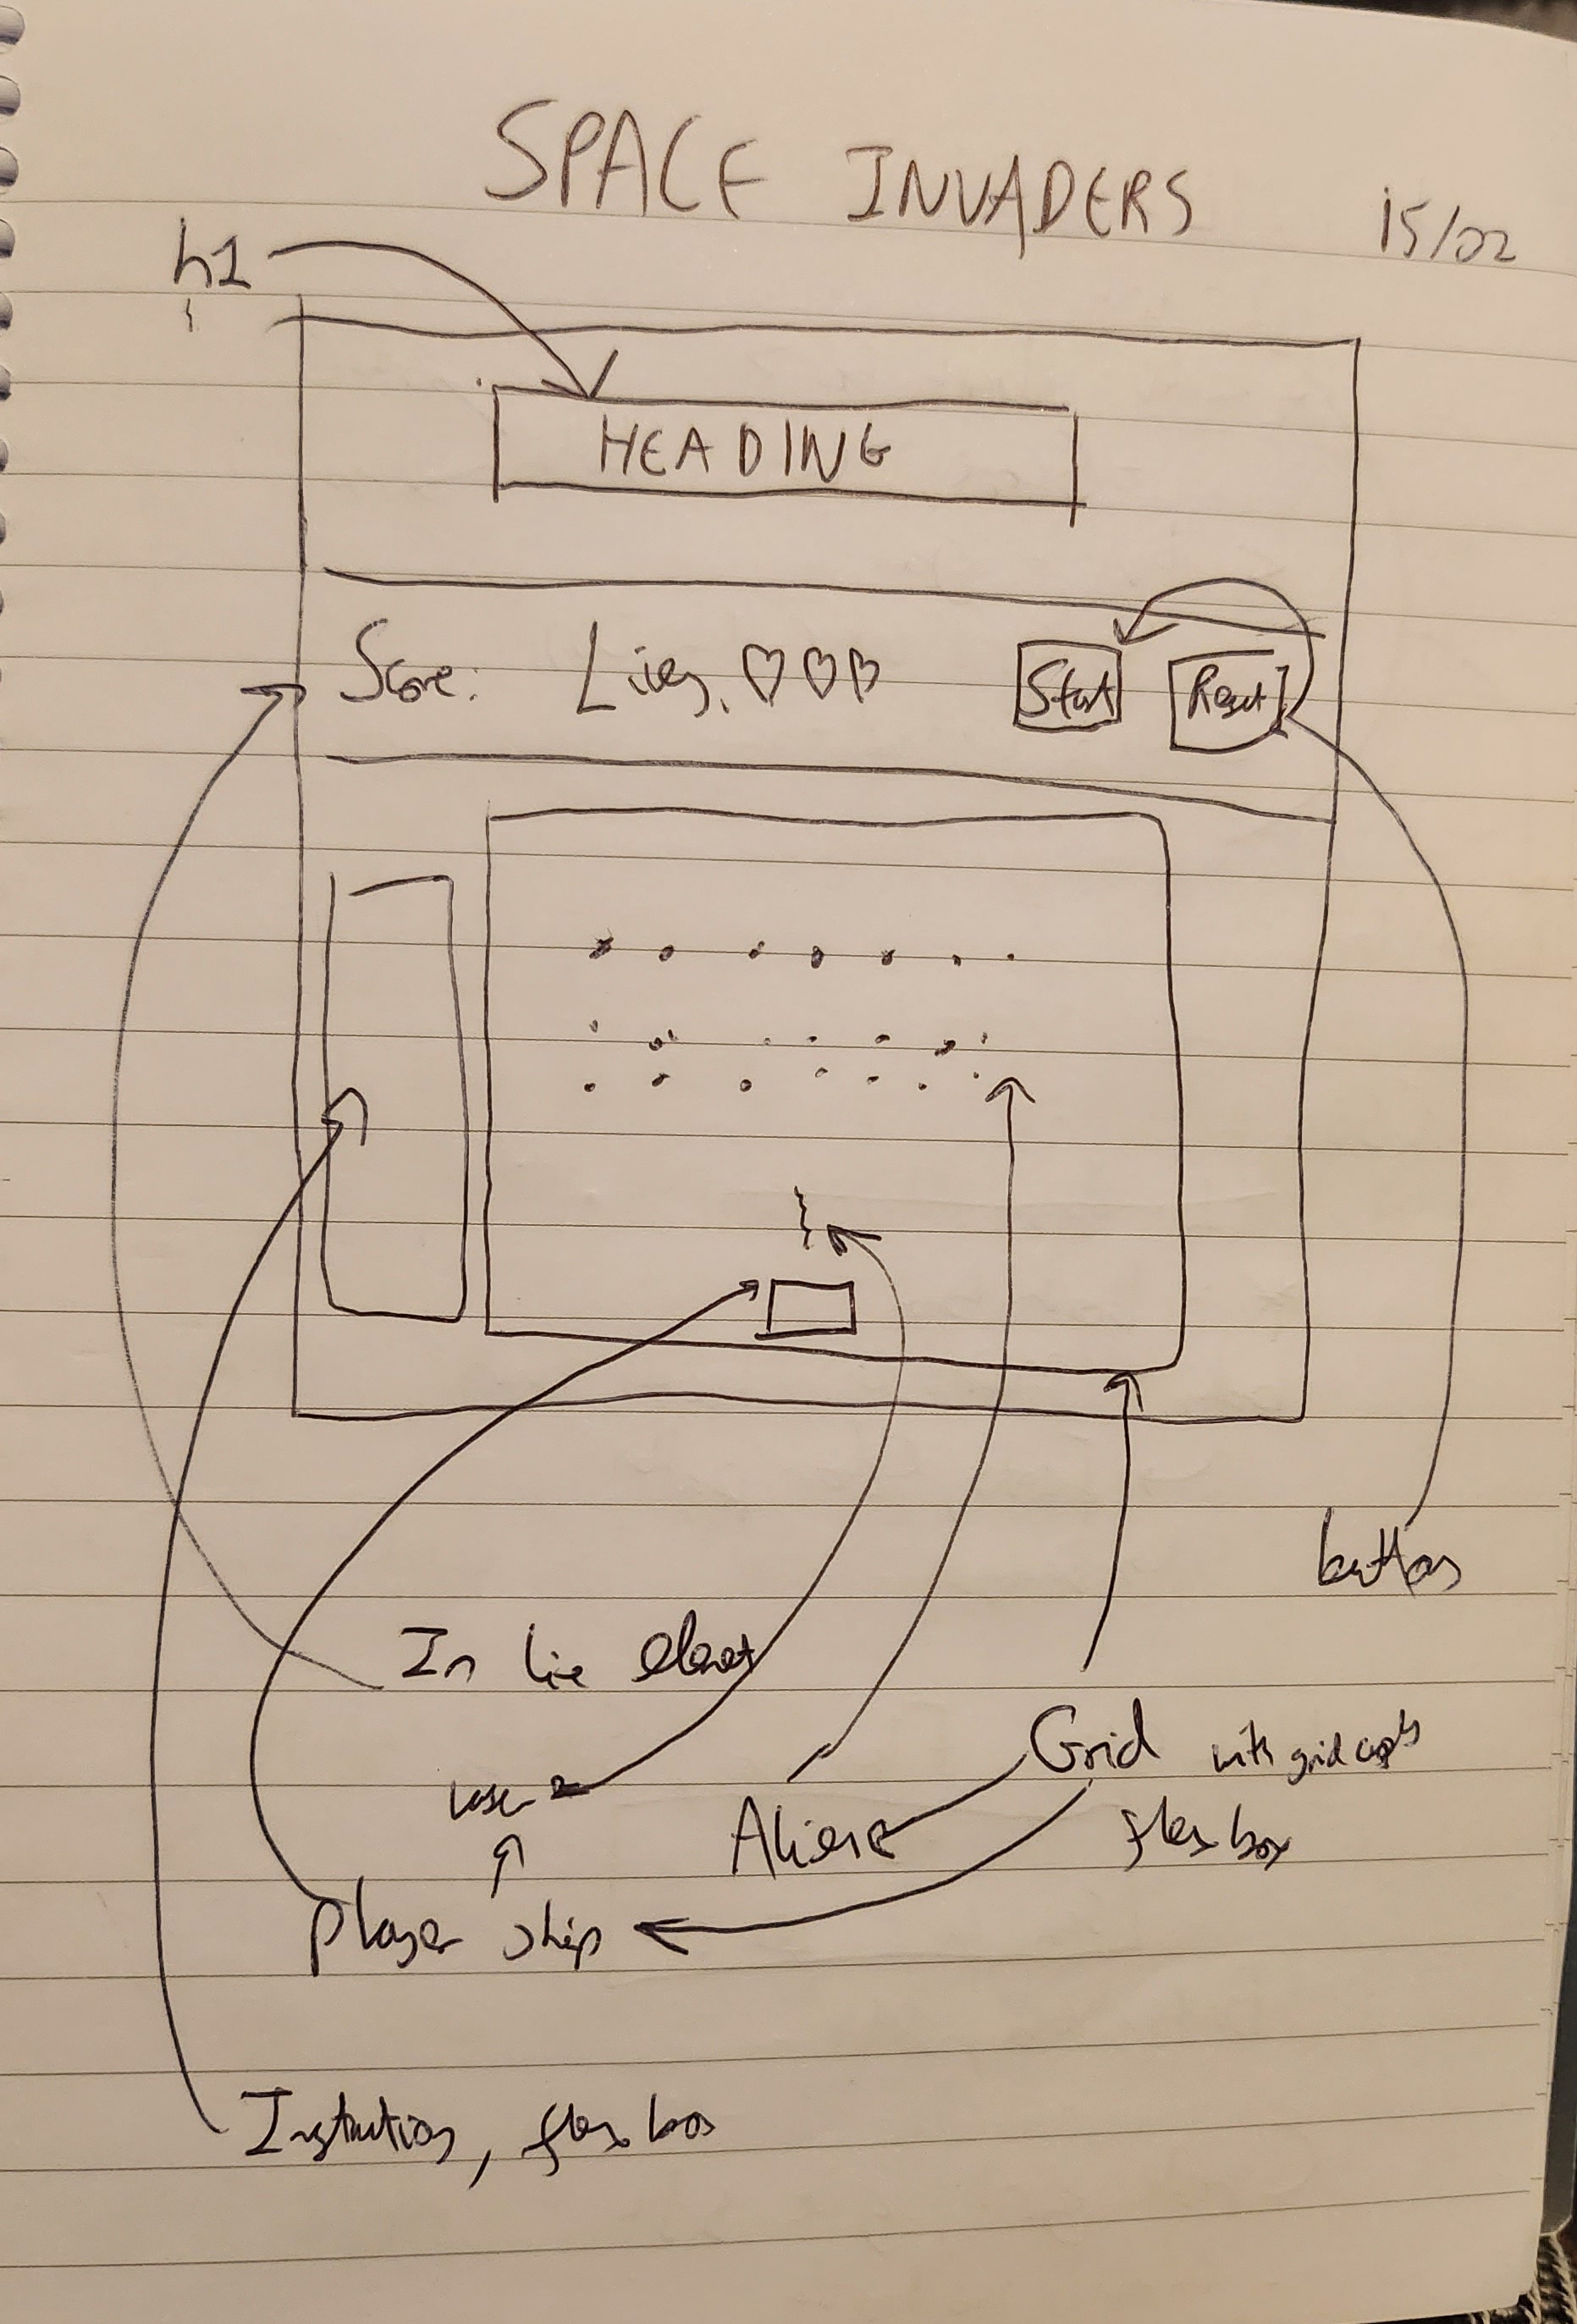 SPACE INVADERS 15/02
h1
HEADING
Score: Lives. Start Reset
buttons
In line element
Grid with grid cells
laser Aliens flex box
player ship
Instructions, flex box